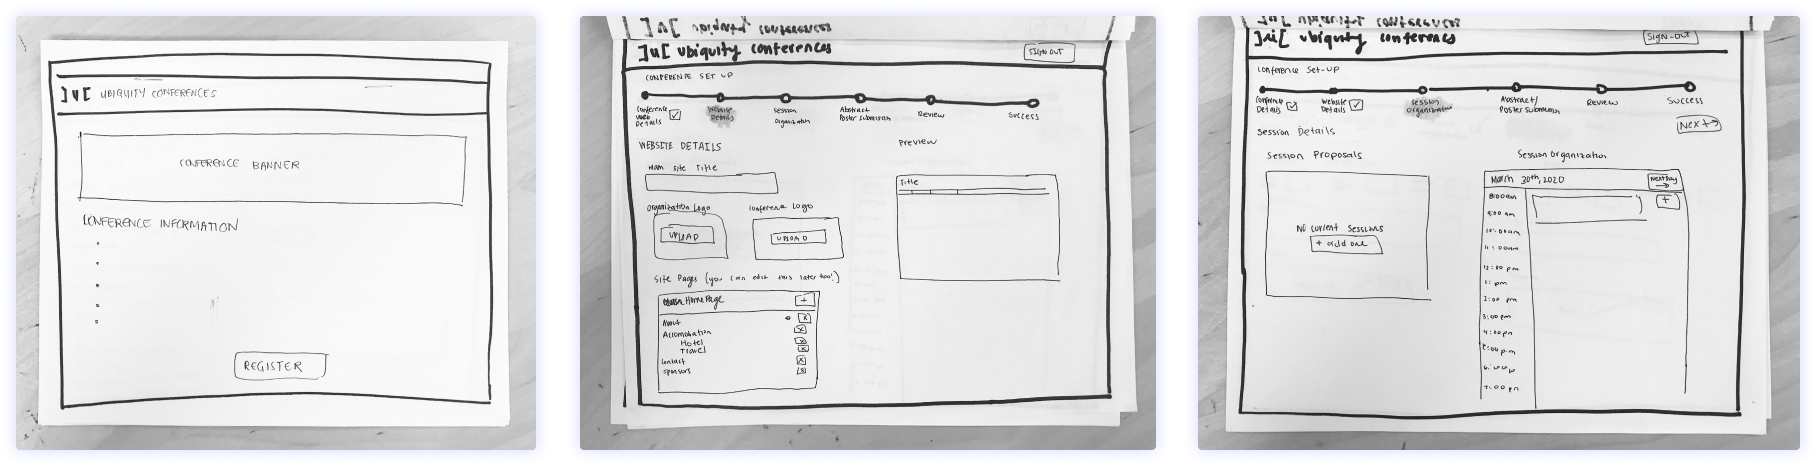 ]u[ UBIQUITY CONFERENCES
CONFERENCE BANNER
CONFERENCE INFORMATION
REGISTER
ubiquity conferences
]u[ ubiquity conferences
SIGN OUT
CONFERENCE SET UP
Conference
Details
Website
Details
Session
Organization
Abstract
Poster Submission
Review
Success
WEBSITE DETAILS
Preview
Main Site Title
Title
Organization Logo
Conference Logo
UPLOAD
UPLOAD
Site Pages (you can edit this later too!)
Home Page
+
About
x
Accomobation
x
Hotel
x
Travel
x
Contact
x
Sponsors
x
ubiquity conferences
ubiquity conferences
SIGN-OUT
Conference Set-UP
Conference
Details
Website
Details
Session
Organization
Abstract/
Poster Submission
Review
Success
Next →
Session Details
Session Proposals
Session Organization
No current Sessions
+ add one
March 30th, 2020
Next Day
→
+
8:00am
9:00 am
10:00am
11:00am
12:00 pm
1: pm
2:00 pm
3:00 pm
4:00pm
5:00 p.m
7:00 pm